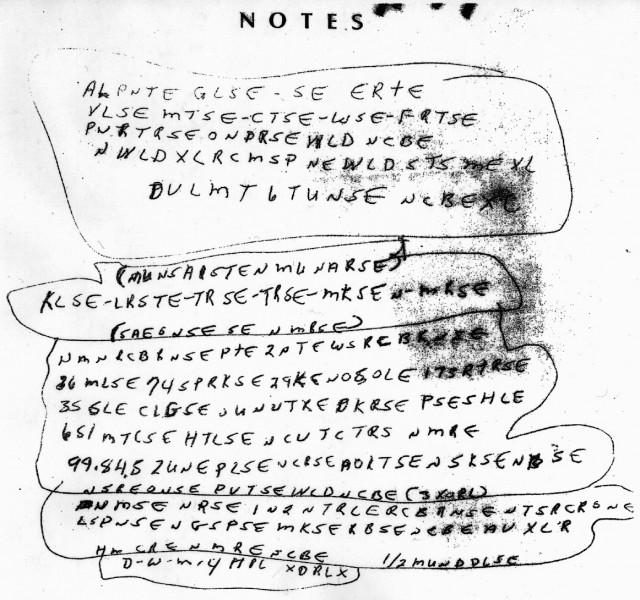 NOTES
ALPNTE GLSE-SE ERTE
VLSE MTSE-CTSE-WSE-FRTSE
PNRTRSEONDRSEWLD NCBE
NWLDXLRCMSP NEWLDSTSMEXL
DULMT6TUNSE NCBEXC
(MUNSAISTENMUNARSE)
KLSE-LRSTE-TRSE-TRSE-MKSEN-MRSE
(SAEGNSESENMBSE)
NMNRCBRNSEPTE2PTEWSRCBRNSE
36MLSE74SPRKSE29KENOSOLE173RTRSE
35GLE CLGSEOUNUTXEDKRSE PSESHLE
651MTCSE HTLSENCUTCTRS NMRE
99.84.52UNEPLSENCRSEAOLTSENSKSENBSE
NSREONSE PUTSEWLDNCBE (3XORL)
NMSE NRSE IN2NTRLERCBRNSENTSRCRONE
LSPNSENGSPSE MKSERBSENCBEAUXLR
HM CRENMRENCBE 1/2MUNDDLSE
D-W-M-4 HPL XDRLX